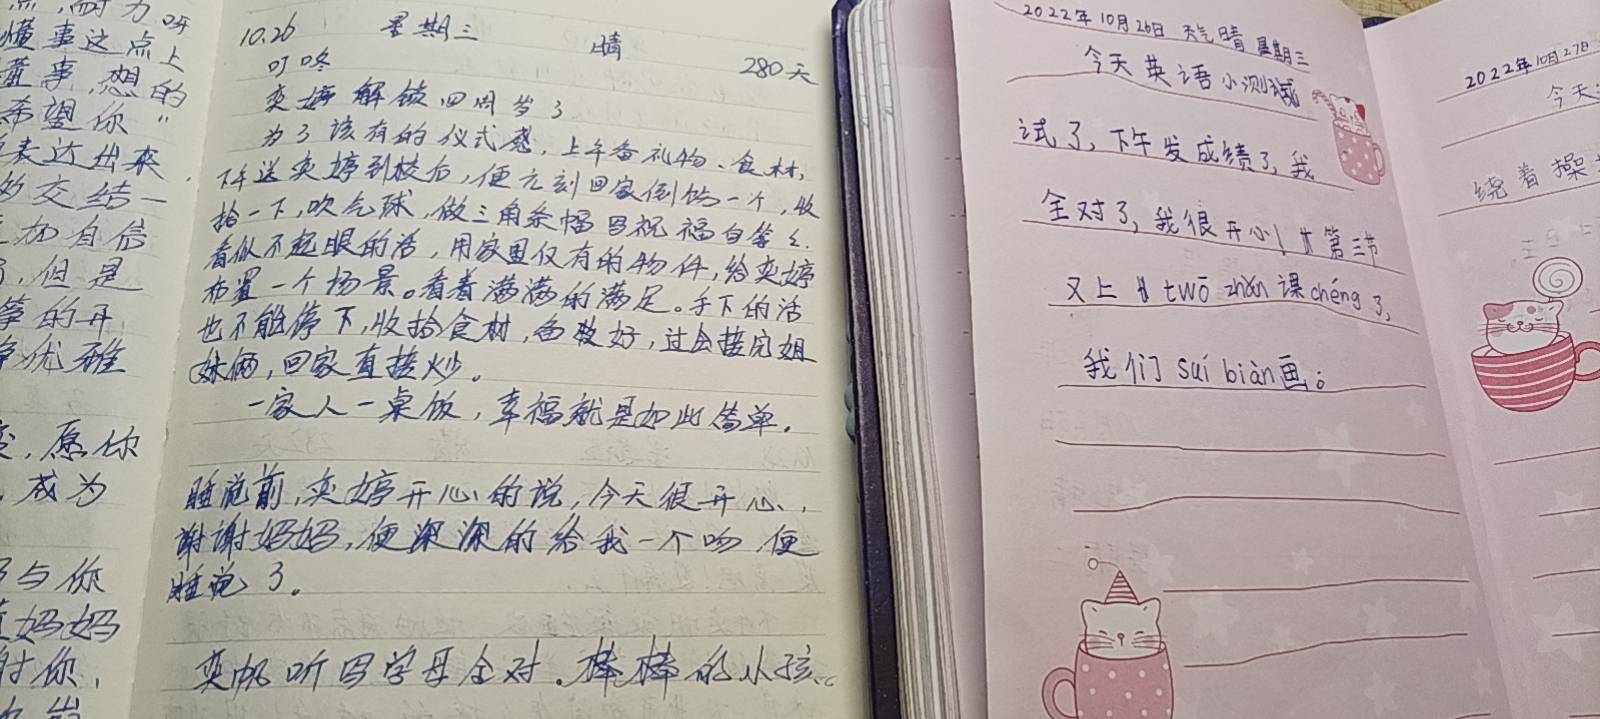 点，努力呀
懂事这点上
懂事，想的
希望你"
表达出来，
的交结一
加自信
，但是
等的开
优雅
，愿你
，成为
与你
妈妈
谢你，
10.26 星期三 晴
280天
叮咚
奕婷解锁四周岁了
为了该有的仪式感，上午备礼物、食材，
下午送奕婷到校后，便立刻回家倒饬一个，收
拾一下，吹气球，做三角条幅
看似不起眼的活，用家里仅有的物件，给奕婷
布置一个场景。看着满满的满足。手下的活
也不能停下，收拾食材，备菜好，过会接完姐
妹俩，回家直接炒。
一家人一桌饭，幸福就是如此简单。
睡觉前，奕婷开心的说，今天很开心，
谢谢妈妈，便深深的给我一个吻，便
睡觉了。
奕帆听写字母全对，棒棒的小孩。
2022年10月26日 天气晴 星期三
今天英语小测
试了，下午发成绩了，我
全对了，我很开心！第三节
又上 twō zhǎn 课 chéng 了，
我们 suí biàn 画。
2022年10月27日
今天
绕着操